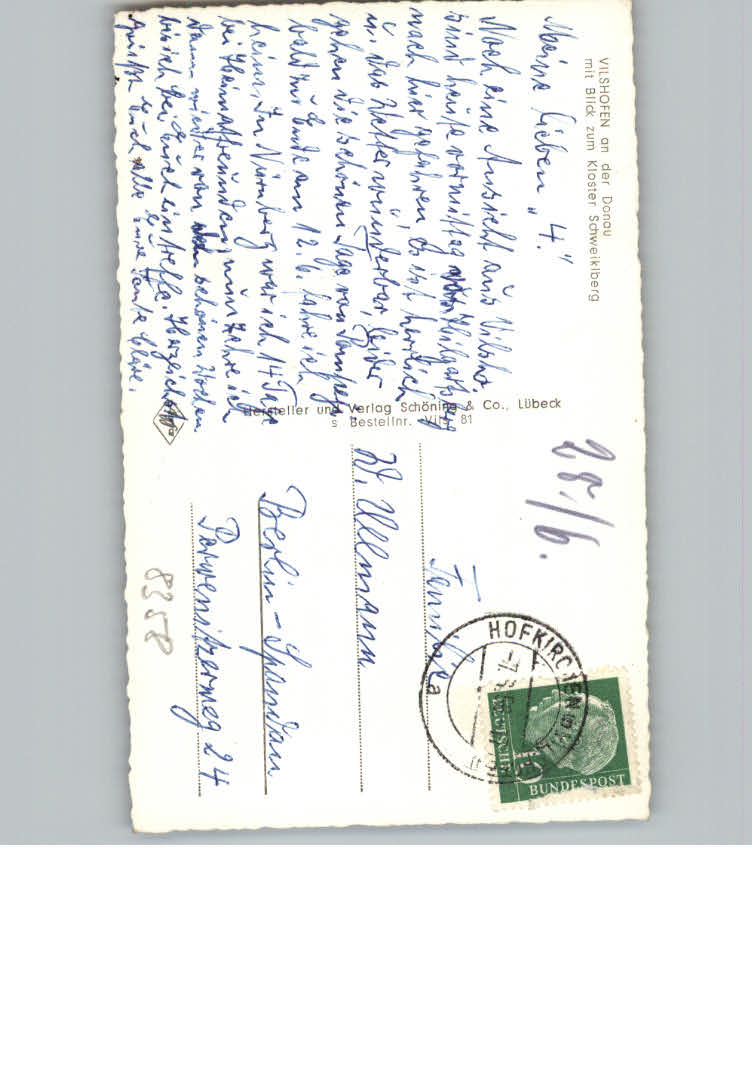 VILSHOFEN an der Donau
mit Blick zum Kloster Schweiklberg
Meine Lieben „4."
Noch eine Ansicht aus Vilsho.
sind heute vormittag von Hilgartsberg
nach hier gefahren es ist herrlich
u. das Wetter wunderbar, leider
gehen die schönen Tage von
bald zu Ende am 12. 6. fahre ich
heim. In Nürnberg war ich 14 Tage
bei Heimatfreunden, nun zehre ich
dann wieder von den schönen Wochen
bis ich bei Euch eintreffe. Herzlichst
grüßt Euch alle Eure Tante Cläre.
Hersteller und Verlag Schöning & Co., Lübeck
s Bestellnr. Vils 81
28./6.
Familie
W. Ullmann
Berlin-Spandau
Parwenitzerweg 24
8358
HOFKIRCHEN
a
DEUTSCHE
BUNDESPOST